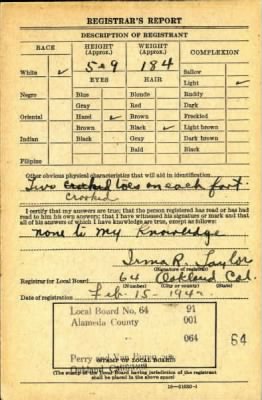 REGISTRAR'S REPORT
DESCRIPTION OF REGISTRANT
RACE HEIGHT (Approx.) WEIGHT (Approx.) COMPLEXION
5-9 184 Sallow
White ✓ EYES HAIR Light ✓
Negro Blue Blonde Ruddy
Gray Red Dark
Oriental Hazel ✓ Brown Freckled
Brown Black ✓ Light brown
Indian Black Gray Dark brown
Bald Black
Filipino
Other obvious physical characteristics that will aid in identification
Two crooked toes on each foot.
crooked
I certify that my answers are true; that the person registered has read or has had
read to him his own answers; that I have witnessed his signature or mark and that
all of his answers of which I have knowledge are true, except as follows:
none to my Knowledge
Irma R. Taylor
(Signature of registrar)
Registrar for Local Board 64 Oakland Cal.
(Number) (City or county) (State)
Date of registration Feb-15-194
Local Board No. 64 91
Alameda County 001
064 64
Perry and Van Buren
Oakland California
(STAMP OF LOCAL BOARD)
(The stamp of the Local Board having jurisdiction of the registrant
shall be placed in the above space)